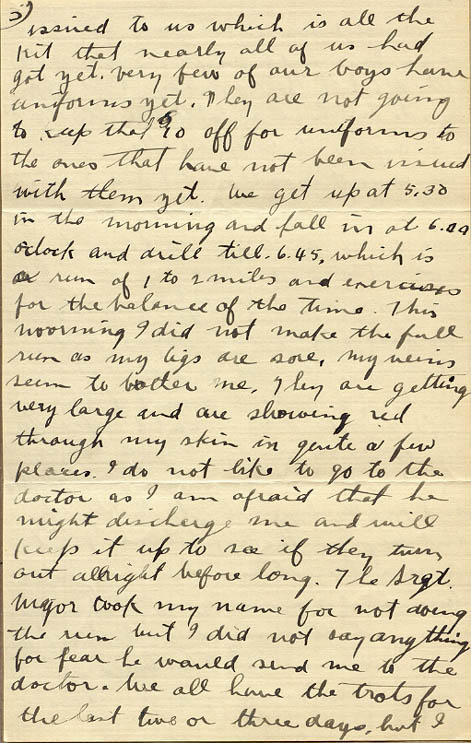 3)
issued to us which is all the
kit that nearly all of us had
got yet. very few of our boys have
uniforms yet. They are not going
to keep that 50 off for uniforms to
the ones that have not been issued
with them yet. We get up at 5.30
in the morning and fall in at 6.00
oclock and drill till 6.45, which is
a run of 1 to 2 miles and exercises
for the balance of the time. This
moorning I did not make the full
run as my ligs are sore, my veins
seem to bother me. They are getting
very large and are showing red
through my skin in qeute a few
places. I do not like to go to the
doctor as I am afraid that he
might discharge me and will
keep it up to see if they turn
out alright before long. The Srgt.
Major took my name for not doing
the run but I did not say anything
for fear he would send me to the
doctor. We all have the trots for
the last two or three days, but I